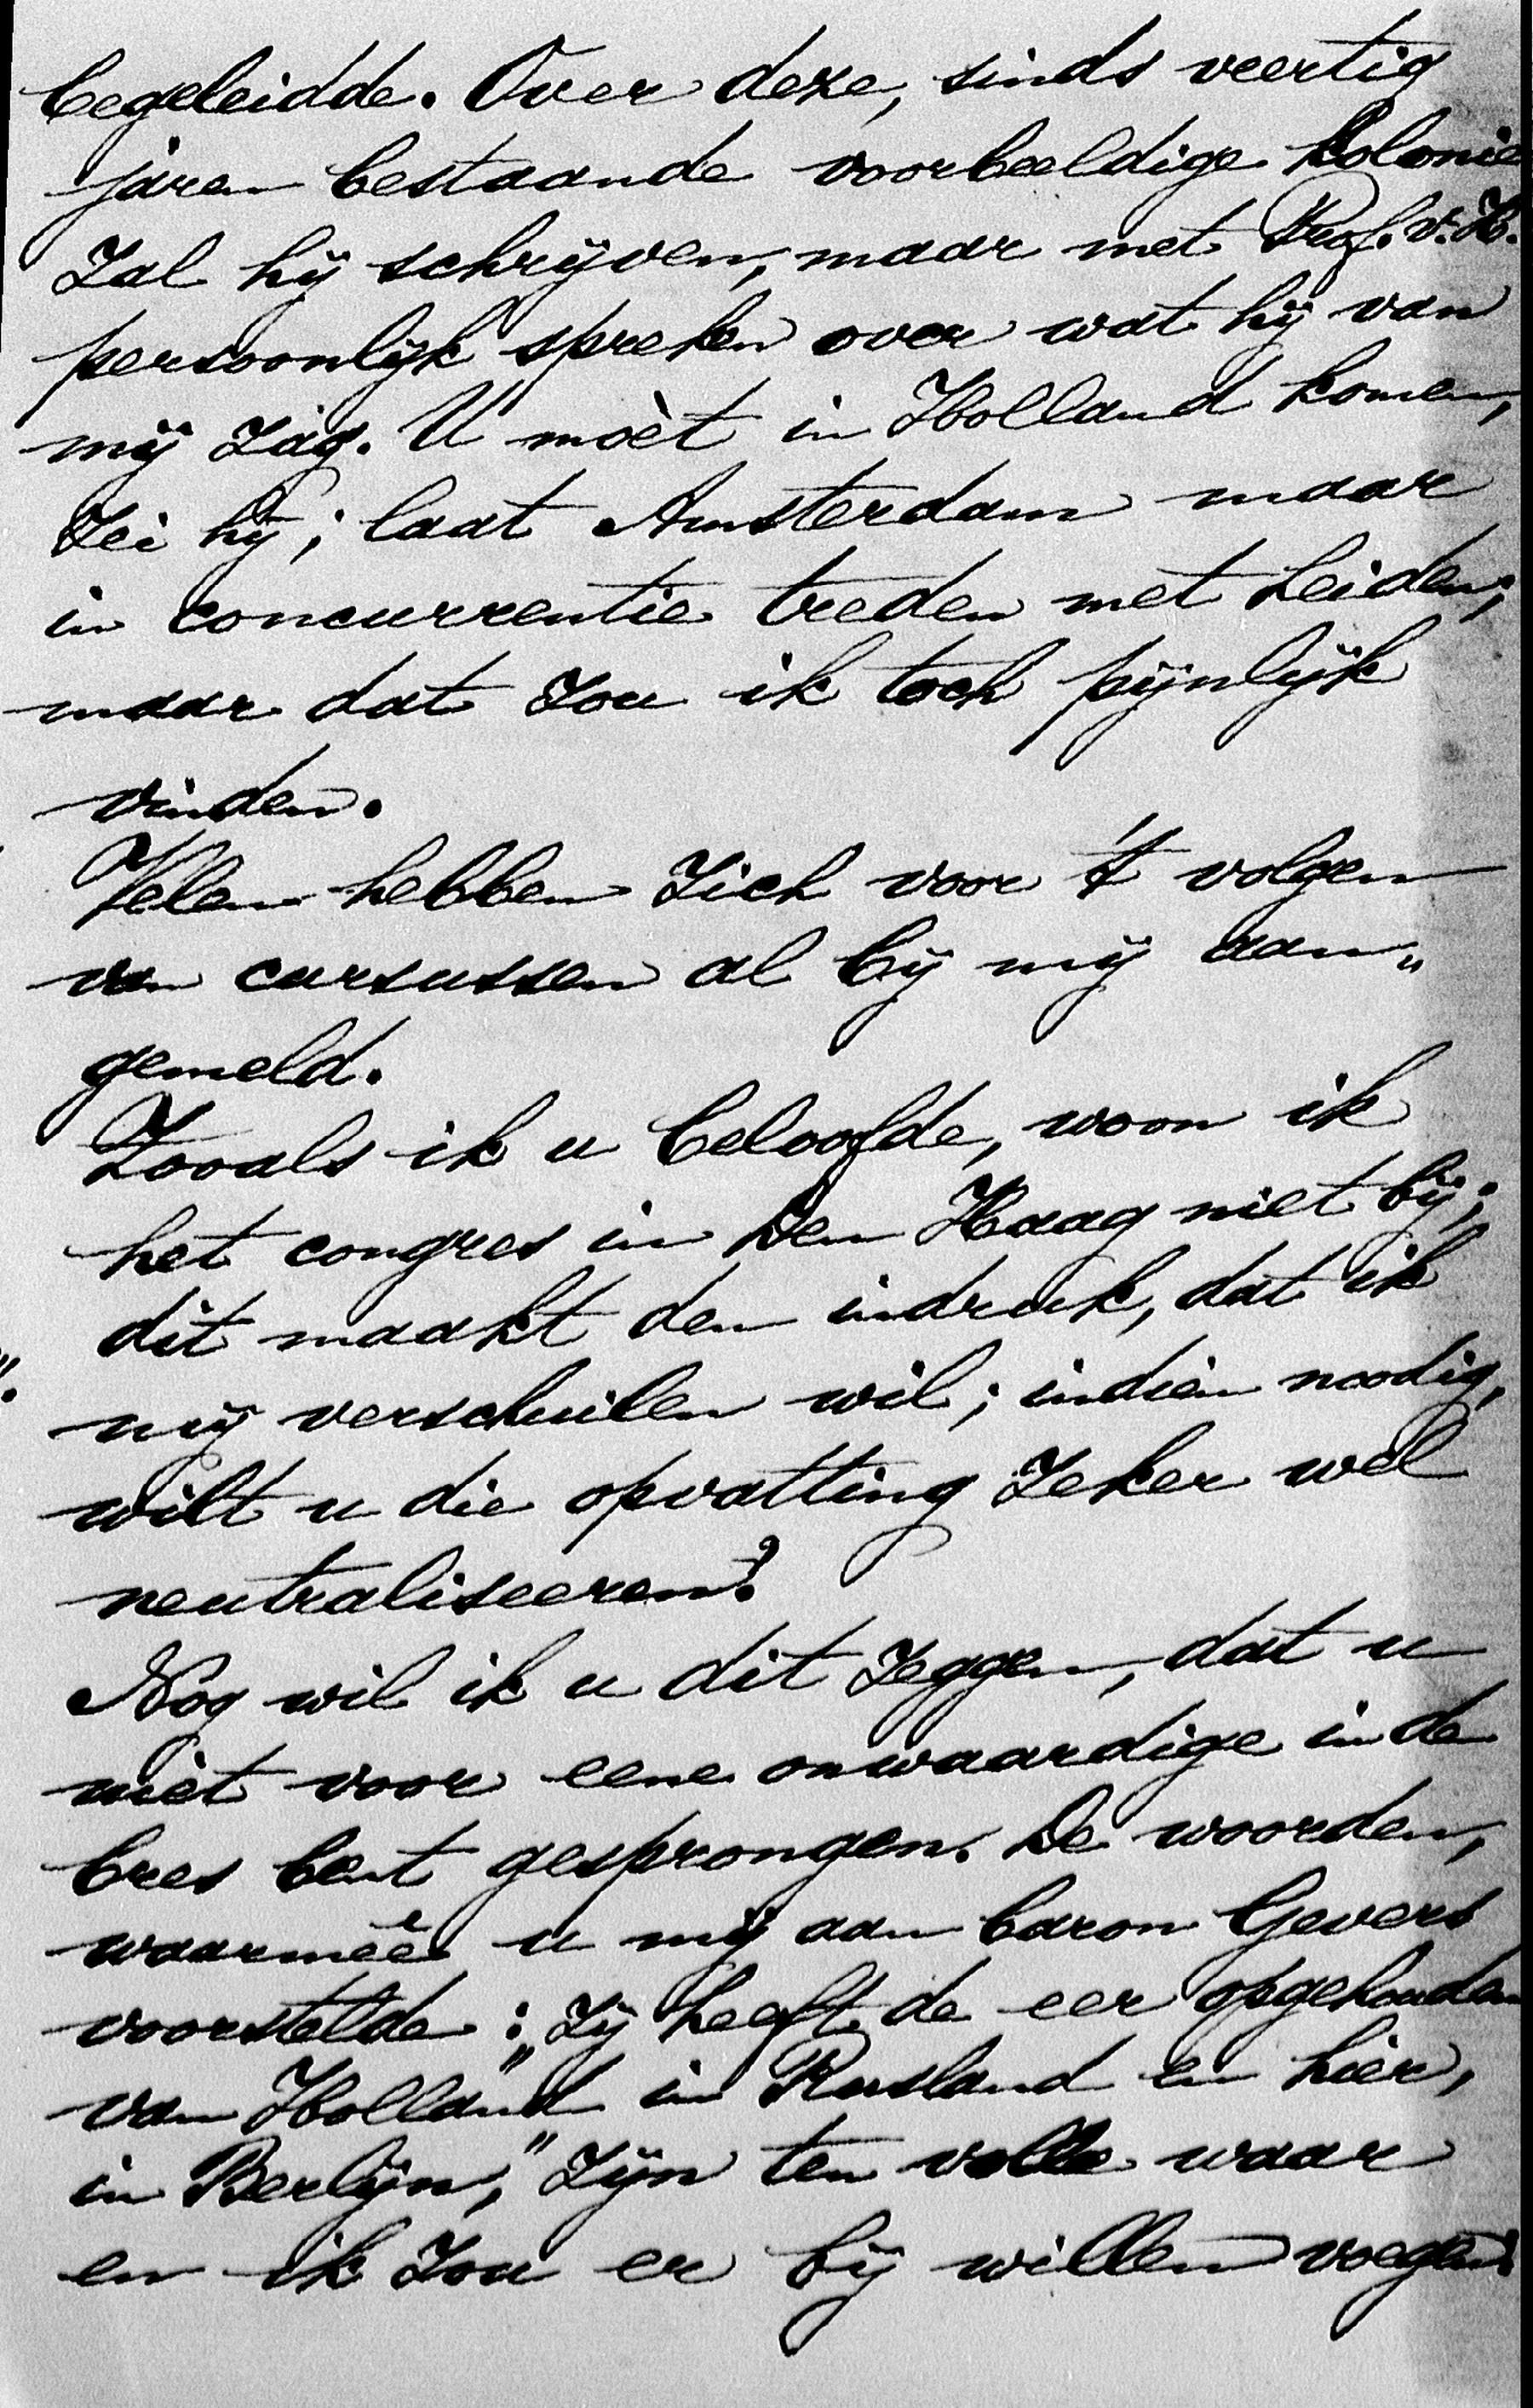 begeleidde. Over deze, sinds veertig
jaren bestaande voorbeeldige kolonie
zal hij schrijven, maar met Prof. v. H.
persoonlijk spreken over wat hij van
mij zag. U moèt in Holland komen,
zei hij; laat Amsterdam maar
in concurrentie treden met Leiden;
maar dat zou ik toch pijnlijk
vinden.
Velen hebben zich voor 't volgen
van cursussen al bij mij aan„
gemeld.
Zooals ik u beloofde, woon ik
het congres in Den Haag niet bij;
dit maakt den indruk, dat ik
mij verschuilen wil; indien noodig,
wilt u die opvatting zeker wel
neutraliseeren?
Nog wil ik u dit zeggen, dat u
niet voor eene onwaardige in de
bres bent gesprongen. De woorden,
waarmeê u mij aan baron Gevers
voorstelde: „Zij heeft de eer opgehouden
van Holland" in Rusland en hier,
in Berlijn," zijn ten volle waar
en ik zou er bij willen voegen: